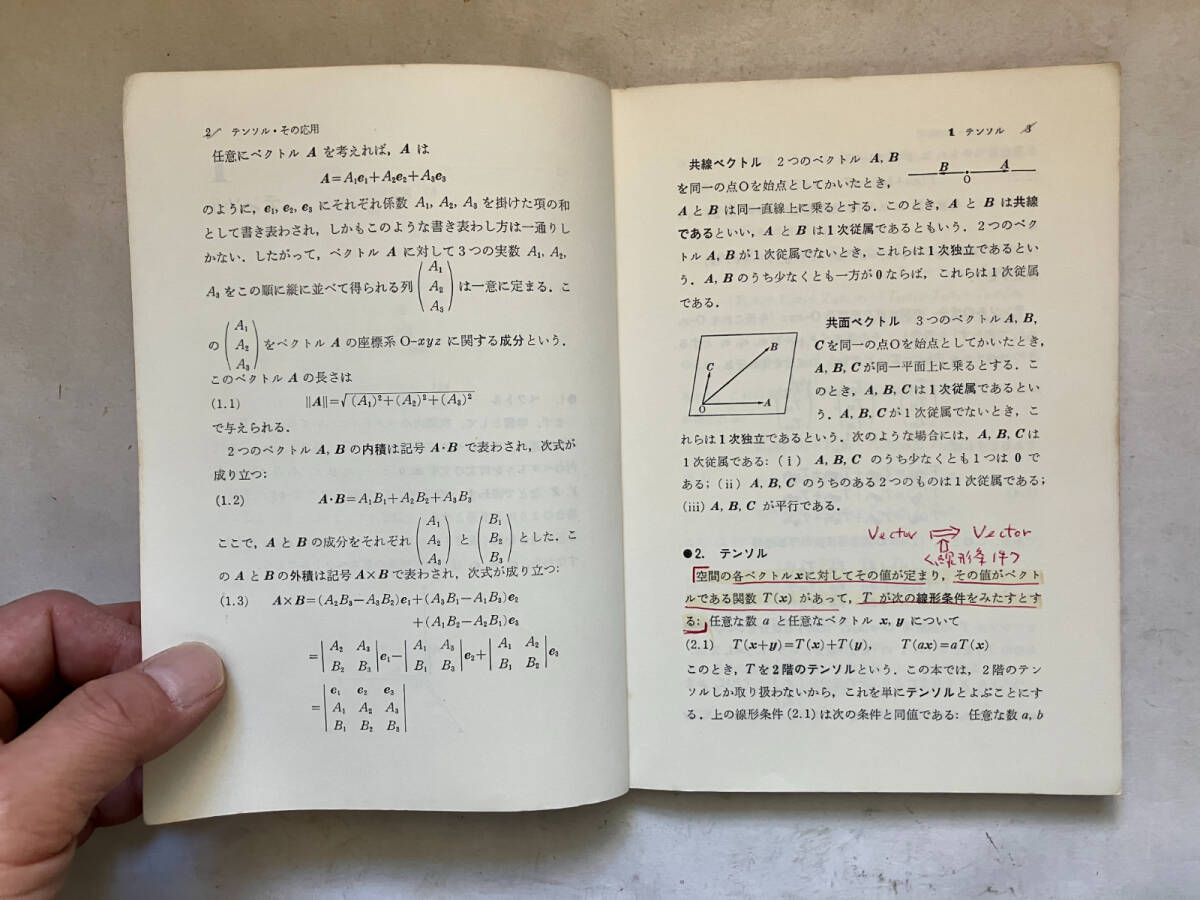 2 テンソル・その応用
任意にベクトル A を考えれば，A は
A=A₁e₁+A₂e₂+A₃e₃
のように，e₁, e₂, e₃ にそれぞれ係数 A₁, A₂, A₃ を掛けた項の和
として書き表わされ，しかもこのような書き表わし方は一通りし
かない．したがって，ベクトル A に対して3つの実数 A₁, A₂,
A₃ をこの順に縦に並べて得られる列(A₁ A₂ A₃)は一意に定まる．こ
の(A₁ A₂ A₃)をベクトル A の座標系 O-xyz に関する成分という．
このベクトル A の長さは
(1.1) ‖A‖=√(A₁)²+(A₂)²+(A₃)²
で与えられる．
2つのベクトル A, B の内積は記号 A・B で表わされ，次式が
成り立つ：
(1.2) A・B=A₁B₁+A₂B₂+A₃B₃
ここで，A と B の成分をそれぞれ(A₁ A₂ A₃)と(B₁ B₂ B₃)とした．こ
の A と B の外積は記号 A×B で表わされ，次式が成り立つ：
(1.3) A×B=(A₂B₃−A₃B₂)e₁+(A₃B₁−A₁B₃)e₂
+(A₁B₂−A₂B₁)e₃
=|A₂ A₃ B₂ B₃|e₁−|A₁ A₃ B₁ B₃|e₂+|A₁ A₂ B₁ B₂|e₃
=|e₁ e₂ e₃
A₁ A₂ A₃
B₁ B₂ B₃|
1 テンソル 3
共線ベクトル 2つのベクトル A, B
B O A
を同一の点Oを始点としてかいたとき，
A と B は同一直線上に乗るとする．このとき，A と B は共線
であるといい，A と B は1次従属であるともいう．2つのベク
トル A, B が1次従属でないとき，これらは1次独立であるとい
う．A, B のうち少なくとも一方が 0 ならば，これらは1次従属
である．
共面ベクトル 3つのベクトル A, B,
C を同一の点Oを始点としてかいたとき，
A, B, C が同一平面上に乗るとする．こ
のとき，A, B, C は1次従属であるとい
う．A, B, C が1次従属でないとき，こ
B C O A
れらは1次独立であるという．次のような場合には，A, B, C は
1次従属である：(i) A, B, C のうち少なくとも1つは 0 で
ある；(ii) A, B, C のうちのある2つのものは1次従属である；
(iii) A, B, C が平行である．
Vector ⇒ Vector
⇑
<線形条件>
●2. テンソル
空間の各ベクトル x に対してその値が定まり，その値がベクト
ルである関数 T(x) があって，T が次の線形条件をみたすとす
る：任意な数 a と任意なベクトル x, y について
(2.1) T(x+y)=T(x)+T(y), T(ax)=aT(x)
このとき，T を2階のテンソルという．この本では，2階のテン
ソルしか取り扱わないから，これを単にテンソルとよぶことにす
る．上の線形条件(2.1)は次の条件と同値である：任意な数 a, b